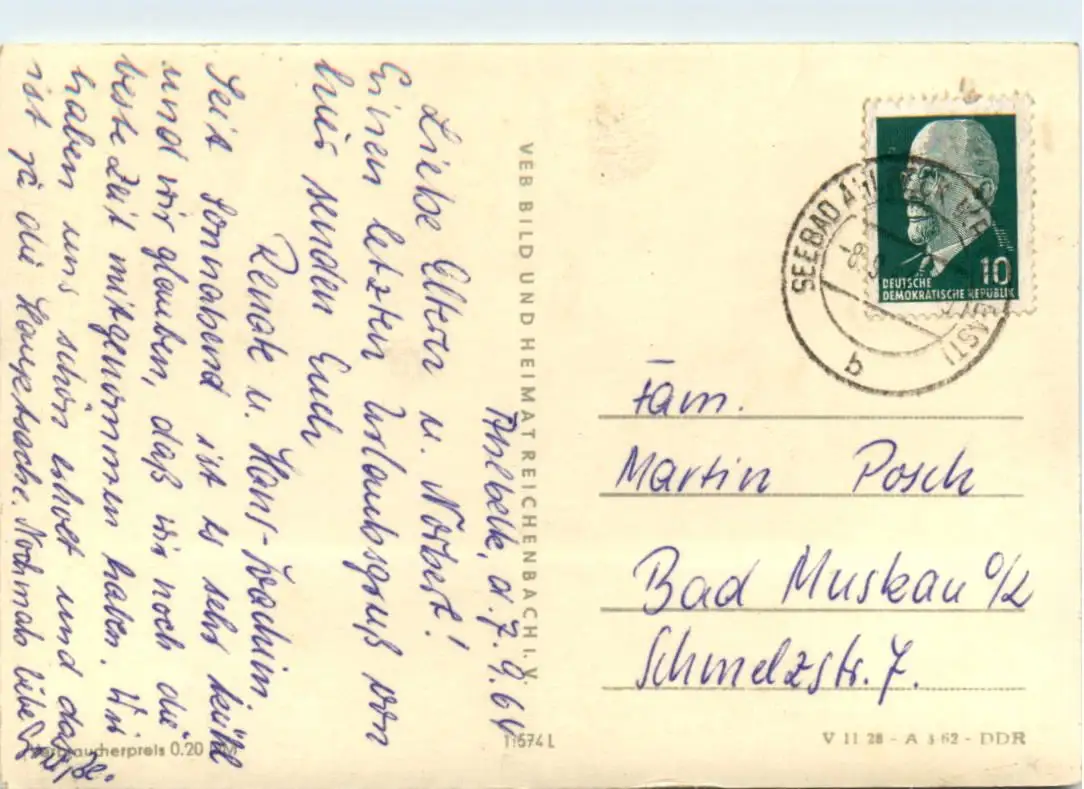 Ahlbeck, d. 7.9.64
Liebe Eltern u. Norbert!
Einen letzten Urlaubsgruß von
hier senden Euch
Renate u. Hans-Joachim.
Seit Sonnabend ist es sehr kühl
und wir glauben, daß wir noch die
beste Zeit mitgenommen haben. Wir
haben uns schön erholt und das
ist ja die Hauptsache. Nochmals liebe Grüße
VEB BILD UND HEIMAT REICHENBACH I. V.
SEEBAD AHLBECK
b
10
DEUTSCHE
DEMOKRATISCHE REPUBLIK
Fam.
Martin Posch
Bad Muskau O/L
Schmelzstr. 7.
Verbraucherpreis 0.20 DM
11574 L
V 11 28 - A 1 62 - DDR